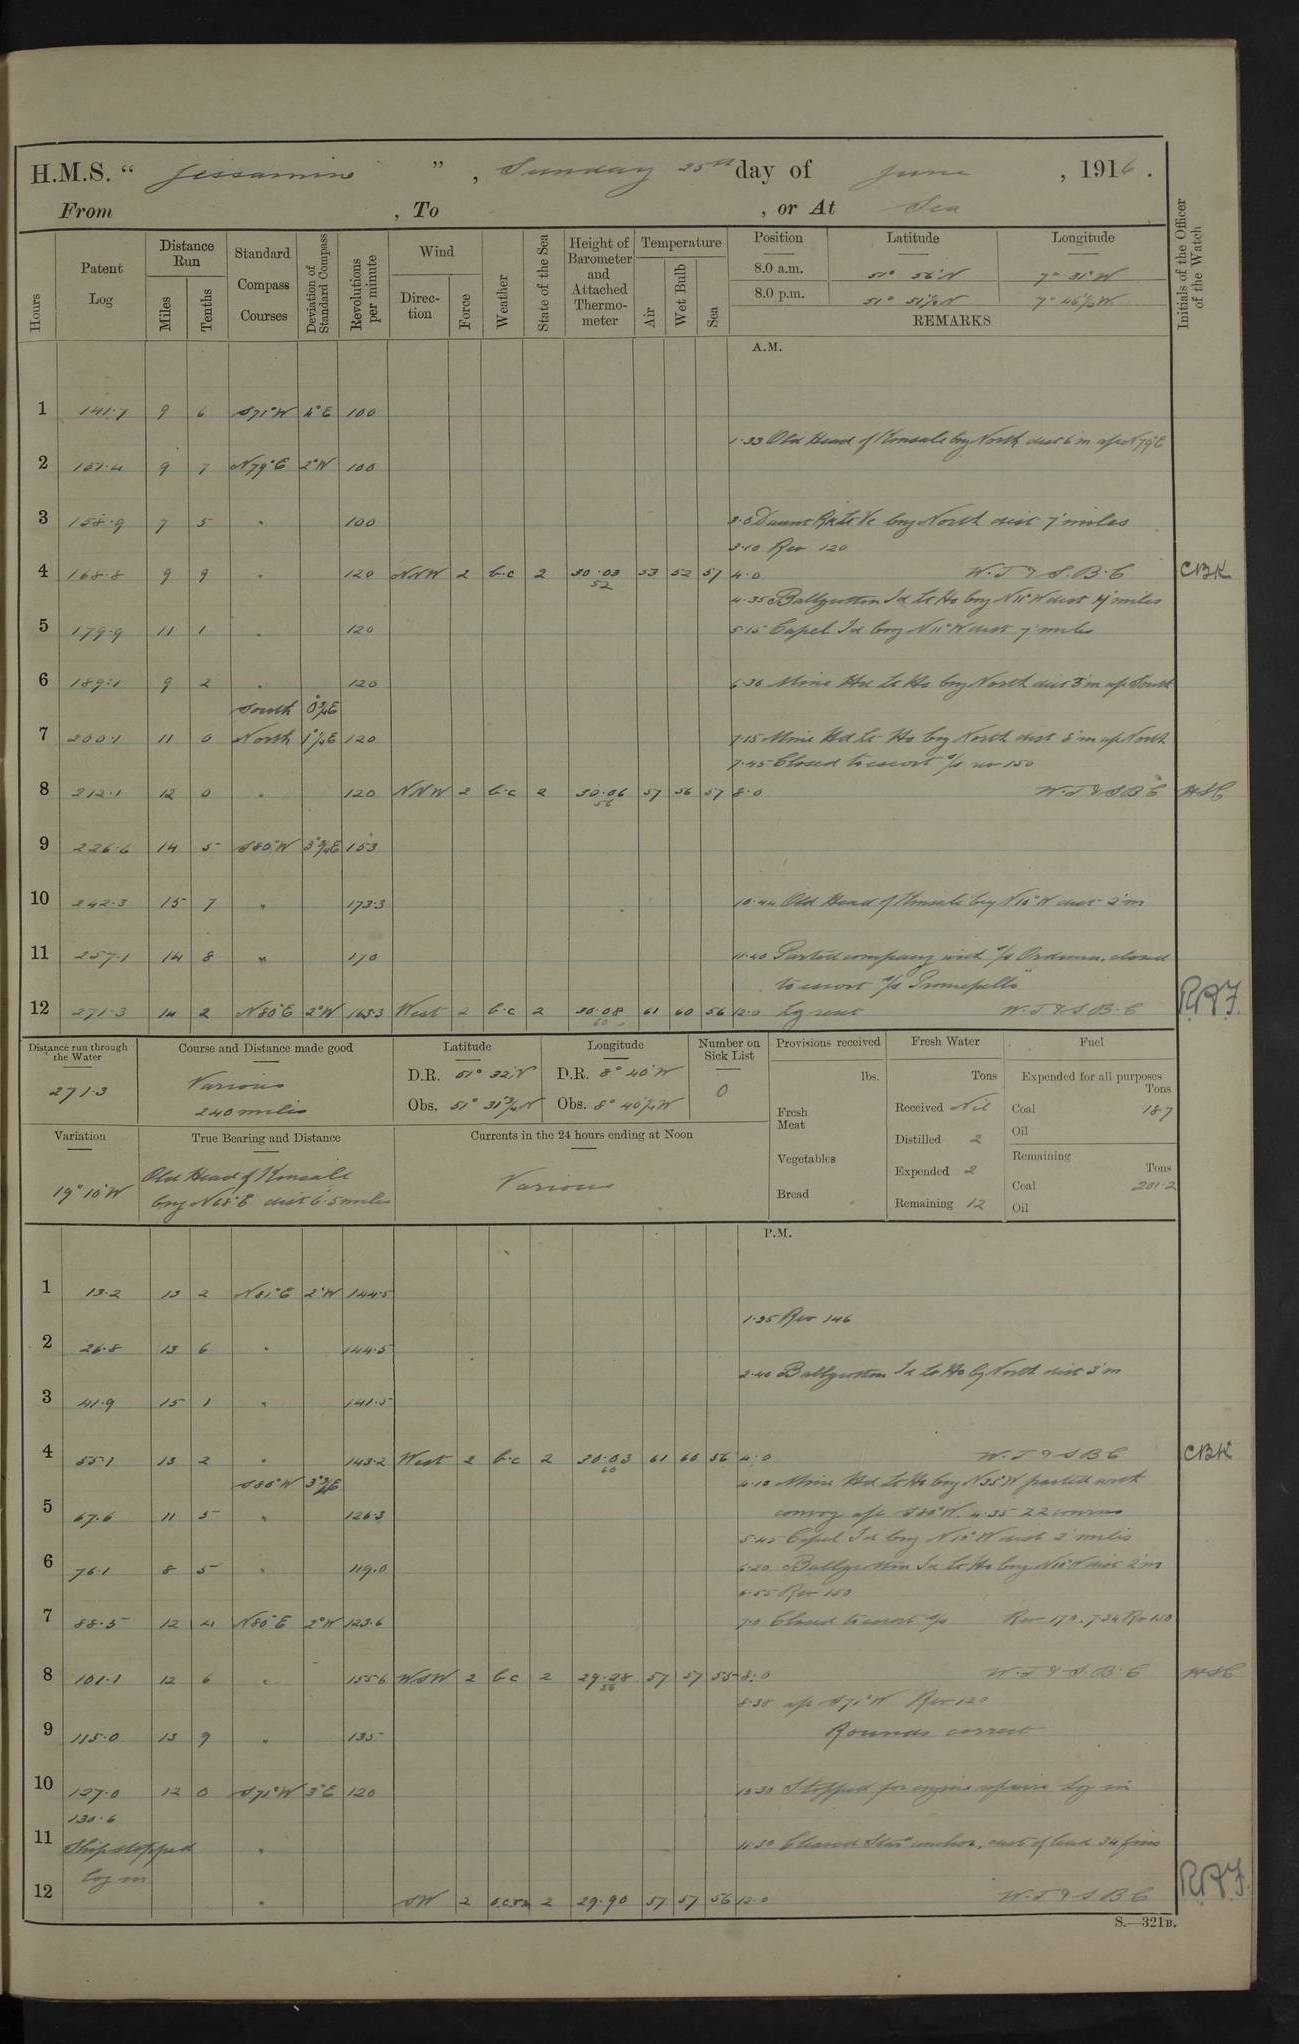 H.M.S. “ Jessamine ” , Sunday 25th day of June , 1916 .
From , To , or At Sea
Hours
Patent Log
Distance Run
Miles
Tenths
Standard Compass Courses
Deviation of Standard Compass
Revolutions per minute
Wind
Direction
Force
Weather
State of the Sea
Height of Barometer and Attached Thermometer
Temperature
Air
Wet Bulb
Sea
Position Latitude Longitude
8.0 a.m. 51° 56' N 7° 31' W
8.0 p.m. 51° 51½' N 7° 46½' W
REMARKS
Initials of the Officer of the Watch
A.M.
1 141.7 9 6 S71°W 4°E 100
1.33 Old Head of Kinsale brg North dist 6'm a/c N79°E
2 151.4 9 7 N79°E 2°W 100
3 158.9 7 5 " 100 3.0 Daunt Rk Lt Ve brg North dist 7 miles
3.10 Rev 120
4 168.8 9 9 " 120 NNW 2 b.c 2 30.03 53 52 57 4.0 W.T & S.B.C CBK
52
4.35 Ballycotton Id Lt Ho brg N11°W dist 7 miles
5 179.9 11 1 " 120 5.15 Capel Id brg N11°W dist 7 miles
6 189.1 9 2 " 120 6.30 Mine Hd Lt Ho brg North dist 5'm a/c South
South 0¾°E
7 200.1 11 0 North 1¼°E 120 7.15 Mine Hd Lt Ho brg North dist 5'm a/c North
7.45 Closed to escort s/s no 150
8 212.1 12 0 " 120 NNW 2 b.c 2 30.06 57 56 57 8.0 W.T & S.B.C HSC
56
9 226.6 14 5 S80°W 3¾°E 153
10 242.3 15 7 " 173.3 10.44 Old Head of Kinsale brg N10°W dist 2'm
11 257.1 14 8 " 170 11.40 Parted company with s/s Orduna, closed
to escort s/s
12 271.3 14 2 N80°E 2°W 163.3 West 2 b.c 2 30.08 61 60 56 12.0 Lg reset W.T & S.B.C R.A.F.
60
Distance run through the Water
271.3
Course and Distance made good
Various
240 miles
Latitude
D.R. 51° 32' N
Obs. 51° 31¾' N
Longitude
D.R. 8° 40' W
Obs. 8° 40½' W
Number on Sick List
0
Provisions received
lbs.
Fresh Meat
Vegetables
Bread
Fresh Water
Tons
Received Nil
Distilled 2
Expended 2
Remaining 12
Fuel
Expended for all purposes
Tons
Coal 18.7
Oil
Remaining
Tons
Coal 201.2
Oil
Variation
19° 10' W
True Bearing and Distance
Old Head of Kinsale
brg N68°E dist 6.5 miles
Currents in the 24 hours ending at Noon
Various
P.M.
1 13.2 13 2 N81°E 2°W 144.5
1.35 Rev 146
2 26.8 13 6 " 144.5
2.40 Ballycotton Id Lt Ho brg North dist 3'm
3 41.9 15 1 " 141.5
4 55.1 13 2 " 143.2 West 2 b.c 2 30.03 61 60 56 4.0 W.T & S.B.C CBK
60
S80°W 3¾°E 4.10 Mine Hd Lt Ho brg N35°W parted with
5 67.6 11 5 " 126.3 convoy a/c S80°W. 4.35 ZZ courses
5.45 Capel Id brg N10°W dist 2 miles
6 76.1 8 5 " 119.0 6.20 Ballycotton Id Lt Ho brg N10°W dist 2'm
6.55 Rev 150
7 88.5 12 4 N80°E 2°W 123.6 7.0 Closed to escort s/s Rev 170. 7.34 Rev 150
8 101.1 12 6 " 155.6 WSW 2 b.c 2 29.28 57 57 55 8.0 W.T & S.B.C HSC
56
8.38 a/c S71°W Rev 120
9 115.0 13 9 " 135 Rounds correct
10 127.0 12 0 S71°W 3°E 120 10.30 Stopped for engine repairs Log in
130.6
11 Ship stopped " 11.30 Cleared Starbd anchor, cast of lead 34 fms
log in
12 " SW 2 2 29.90 57 57 56 12.0 W.T & S.B.C R.A.F.
S.—321B.